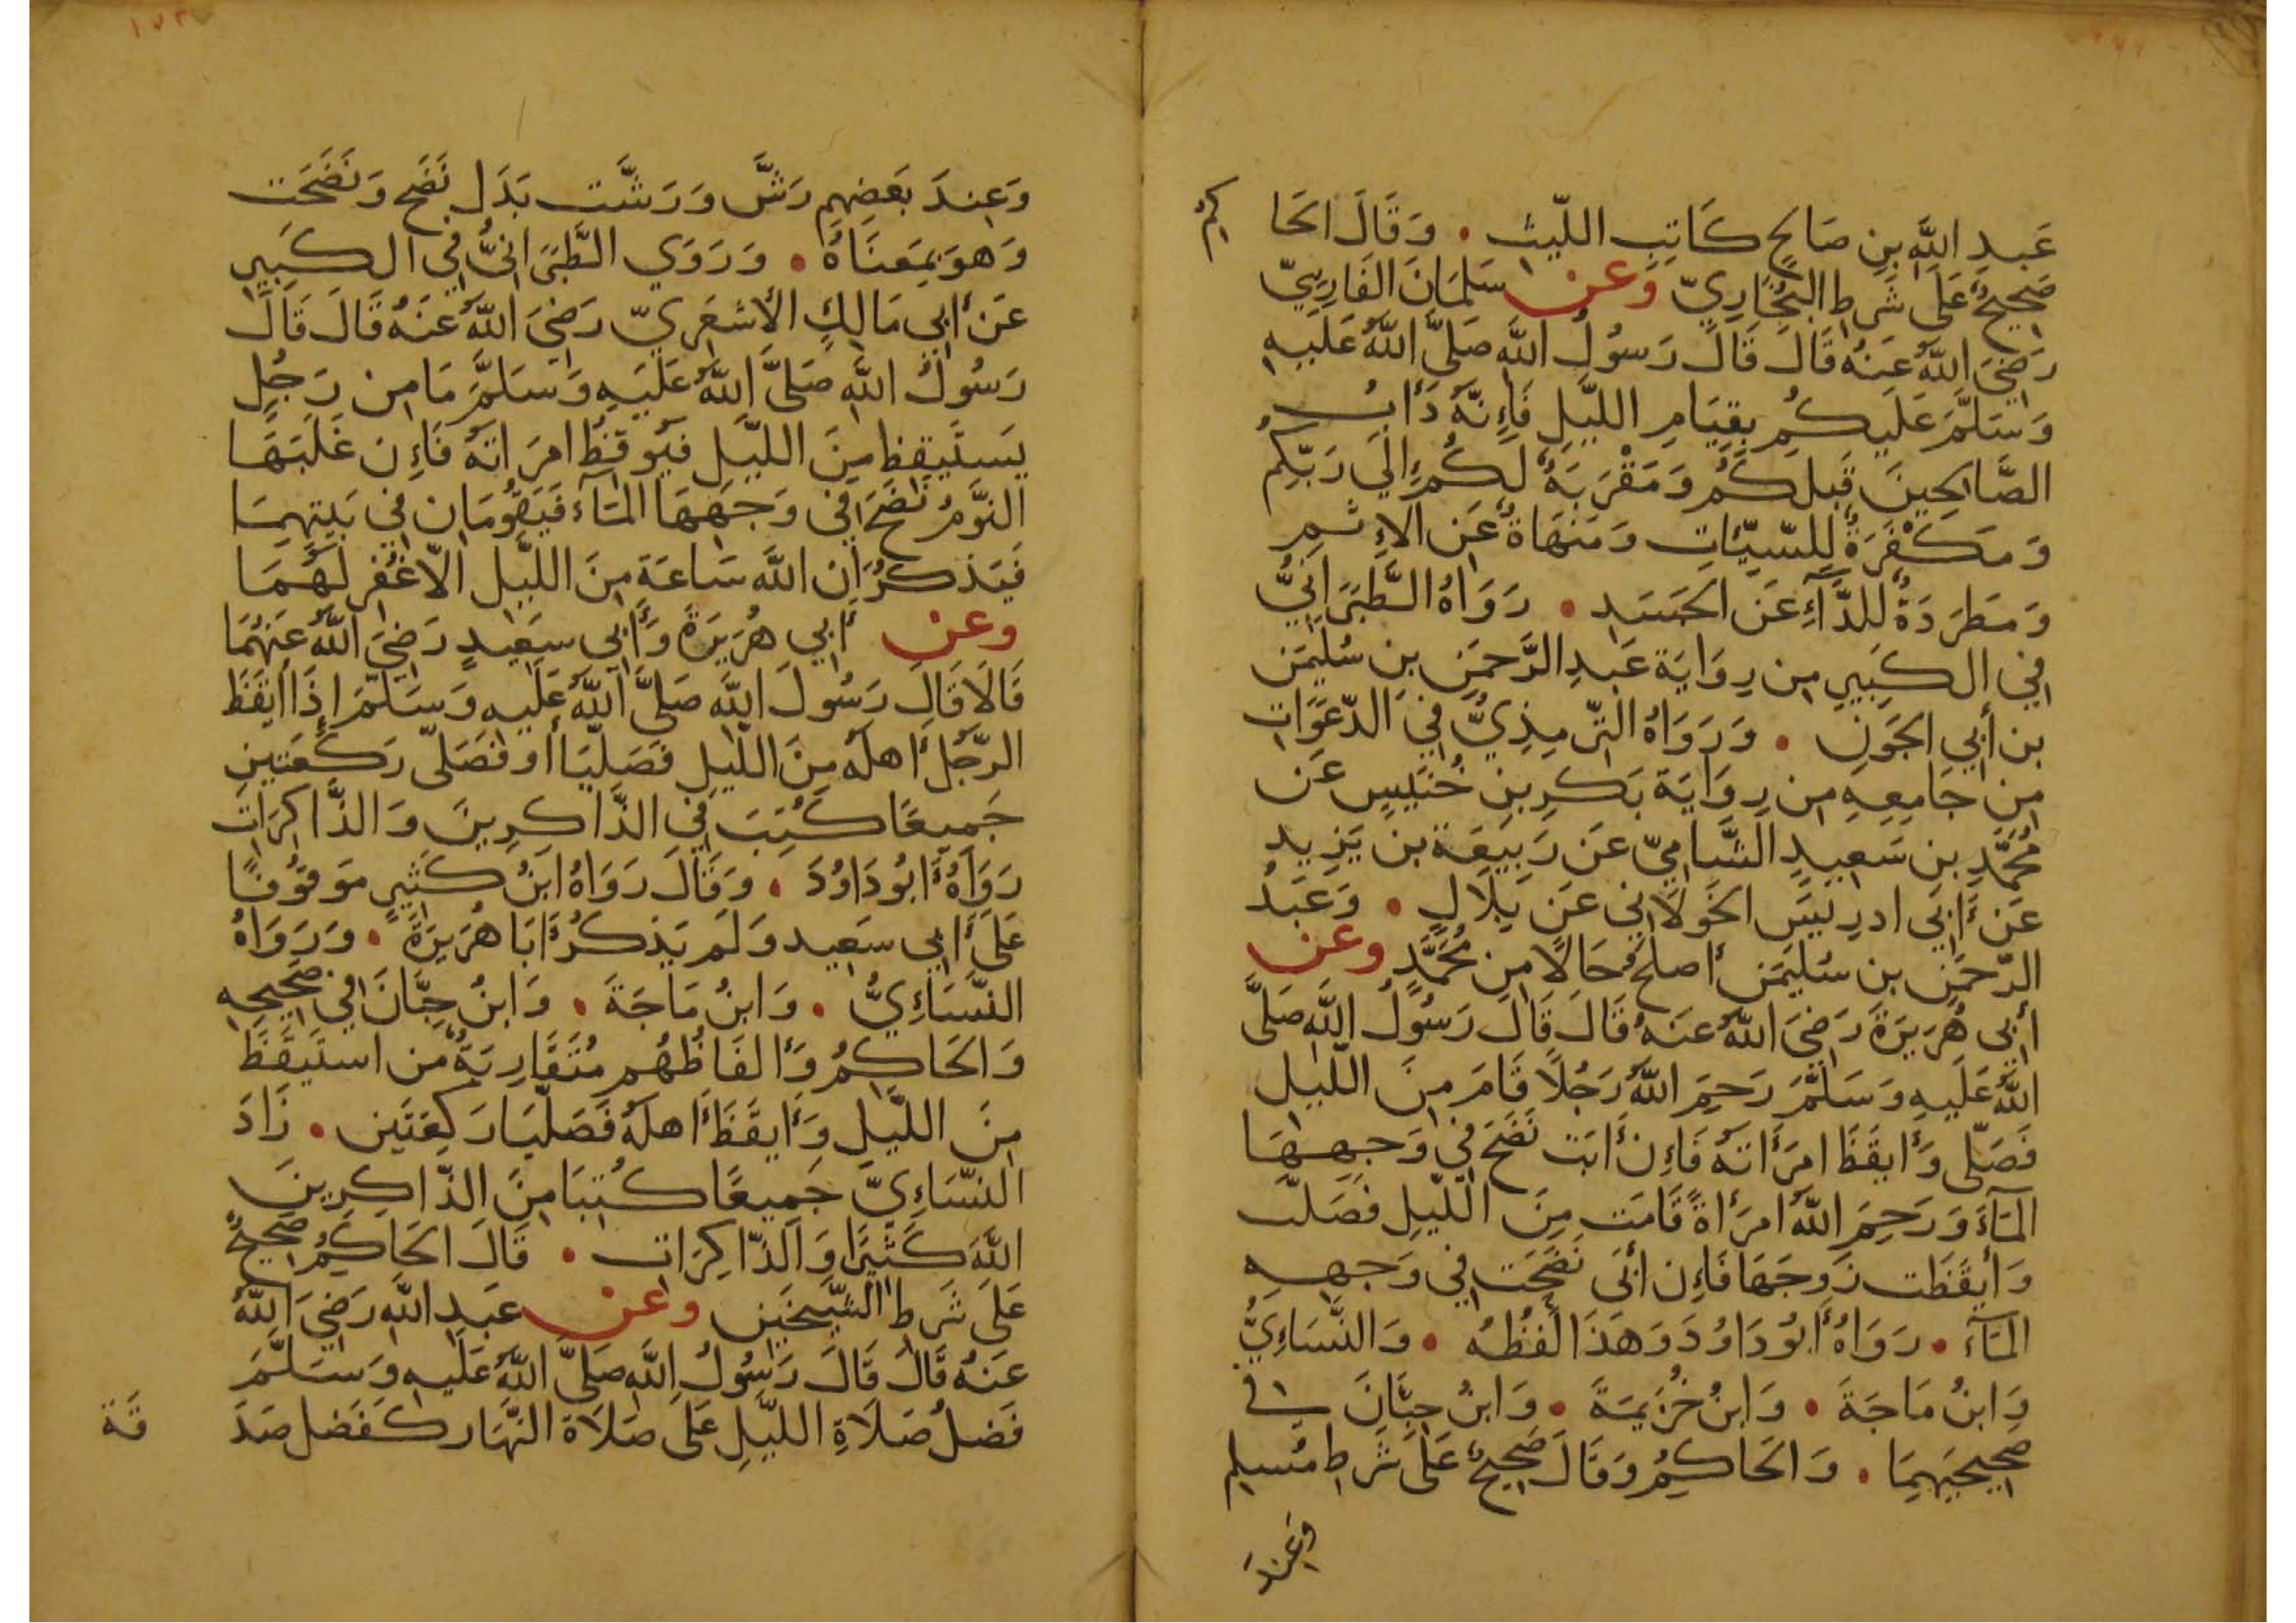 عَبدِ اللَّهِ بنِ صَالِحٍ كَاتِبِ اللّيثِ . وَقَالَ الحَا كِمُ
صَحِيحٌ عَلَى شَرطِ البُخَارِيّ وَعن سَلمَانَ الفَارِسِيّ
رَضِيَ اللَّهُ عَنهُ قَالَ قَالَ رَسُولُ اللَّهِ صَلَّى اللَّهُ عَلَيهِ
وَسَلَّمَ عَلَيكُم بِقِيَامِ اللَّيلِ فَإِنَّهُ دَأبُ
الصَّالِحِينَ قَبلَكُم وَمَقْرَبَةٌ لَكُم إلَي رَبِّكُم
وَمَكْفَرَةٌ لِلسّيّئَاتِ وَمَنهَاةٌ عَنِ الإِثمِ
وَمَطرَدَةٌ لِلدَّآءِ عَنِ الجَسَدِ . رَوَاهُ الطَّبَرَانِيُّ
فِي الكَبِيرِ مِن رِوَايَةِ عَبدِ الرَّحمَنِ بنِ سُلَيمَن
بنِ أَبِي الجَونِ . وَرَوَاهُ التّرمِذِيُّ فِي الدّعَوَاتِ
مِن جَامِعِهِ مِن رِوَايَةِ بَكرِ بنِ خُنَيسٍ عَن
مُحَمَّدِ بنِ سَعِيدِ الشَّامِيّ عَن رَبِيعَةَ بنِ يَزِيد
عَن أَبِي ادرِيسَ الخَولَانِي عَن بِلَالٍ . وَعَبدُ
الرّحمَنِ بن سُلَيمَن أَصلَحُ حَالًا مِن مُحَمَّدٍ وعن
أَبِي هُرَيرَةَ رَضِيَ اللَّهُ عَنهُ قَالَ قَالَ رَسُولُ اللَّهِ صَلَّى
اللَّهُ عَلَيهِ وَسَلَّمَ رَحِمَ اللَّهُ رَجُلًا قَامَ مِنَ اللَّيلِ
فَصَلّى وَأَيقَظَ امرَأَتَهُ فَإِن أَبَت نَضَحَ فِي وَجهِهَا
المَآءَ وَرَحِمَ اللَّهُ امرَأَةً قَامَت مِنَ اللّيلِ فَصَلَّت
وَأَيقَظَت زَوجَهَا فَإِن أَبَى نَضَحَت فِي وَجهِهِ
المَآءَ . رَوَاهُ أَبُو دَاوُدَ وَهَذَا لَفظُهُ . وَالنَّسَاءِيُّ
وَابنُ مَاجَةَ . وَابنُ خُزَيمَةَ . وَابنُ حِبَّانَ في
صَحِيحَيهِمَا . وَالحَاكِمُ وَقَالَ صَحِيحٌ عَلَى شَرطِ مُسلِمٍ
وَعِندَ
وَعِندَ بَعضِهِم رَشَّ وَرَشَّت بَدَلَ نَضَحَ وَنَضَحَت
وَهوَ بِمَعنَاهُ . وَرَوَي الطَّبَرَانيُّ فِي الكَبِيرِ
عَن أَبِي مَالِكٍ الأَشعَرِيّ رَضِيَ اللَّهُ عَنهُ قَالَ قَالَ
رَسُولُ اللَّهِ صَلَّى اللَّهُ عَلَيهِ وَسَلَّمَ مَا مِن رَجُلٍ
يَستَيقِظُ مِنَ اللَّيلِ فَيُوقِظُ امرَاتَهُ فَإِن غَلَبَهَا
النَّومُ نَضَحَ فِي وَجهِهَا المَآءَ فَيَقُومَانِ فِي بَيتِهِمَا
فَيَذكُرَانِ اللَّهَ سَاعَةً مِنَ اللَّيلِ الّا غُفِرَ لَهُمَا
وعن أَبِي هُرَيرَةَ وَأَبِي سَعِيدٍ رَضِيَ اللَّهُ عَنهُمَا
قَالَا قَالَ رَسُولُ اللَّهِ صَلَّى اللَّهُ عَلَيهِ وَسَلَّمَ إذَا أَيقَظَ
الرَّجُلُ أَهلَهُ مِنَ اللَّيلِ فَصَلَّيَا أَو فَصَلَّى رَكعَتَينِ
جَمِيعًا كُتِبَ فِي الذَّاكِرِينَ وَالذَّاكِرَاتِ
رَوَاهُ أَبُو دَاوُدَ . وَقَالَ رَوَاهُ ابنُ كَثِيرٍ مَوقُوفًا
عَلَى أَبِي سَعِيد وَلَم يَذكُر أَبَا هُرَيرَةَ . وَرَوَاهُ
النَّسَاءِيُّ . وَابنُ مَاجَةَ . وَابنُ حِبَّانَ فِي صَحِيحِهِ
وَالحَاكِمُ وَأَلفَاظُهُم مُتَقَارِبَةٌ مَنِ استَيقَظَ
مِنَ اللَّيلِ وَأَيقَظَ أَهلَهُ فَصَلَّيَا رَكعَتَينِ . زَادَ
النَّسَاءِيّ جَمِيعًا كُتِبَا مِنَ الذَّاكِرِينَ
اللَّهَ كَثِيرًا وَالذَّاكِرَاتِ . قَالَ الحَاكِمُ صَحِيحٌ
عَلَى شَرطِ الشَّيخَينِ وعن عَبدِ اللَّهِ رَضِيَ اللَّهُ
عَنهُ قَالَ قَالَ رَسُولُ اللَّهِ صَلَّى اللَّهُ عَلَيهِ وَسَلَّمَ
فَضلُ صَلَاةِ اللَّيلِ عَلَى صَلَاةِ النَّهَارِ كَفَضلِ صَدَ قَة